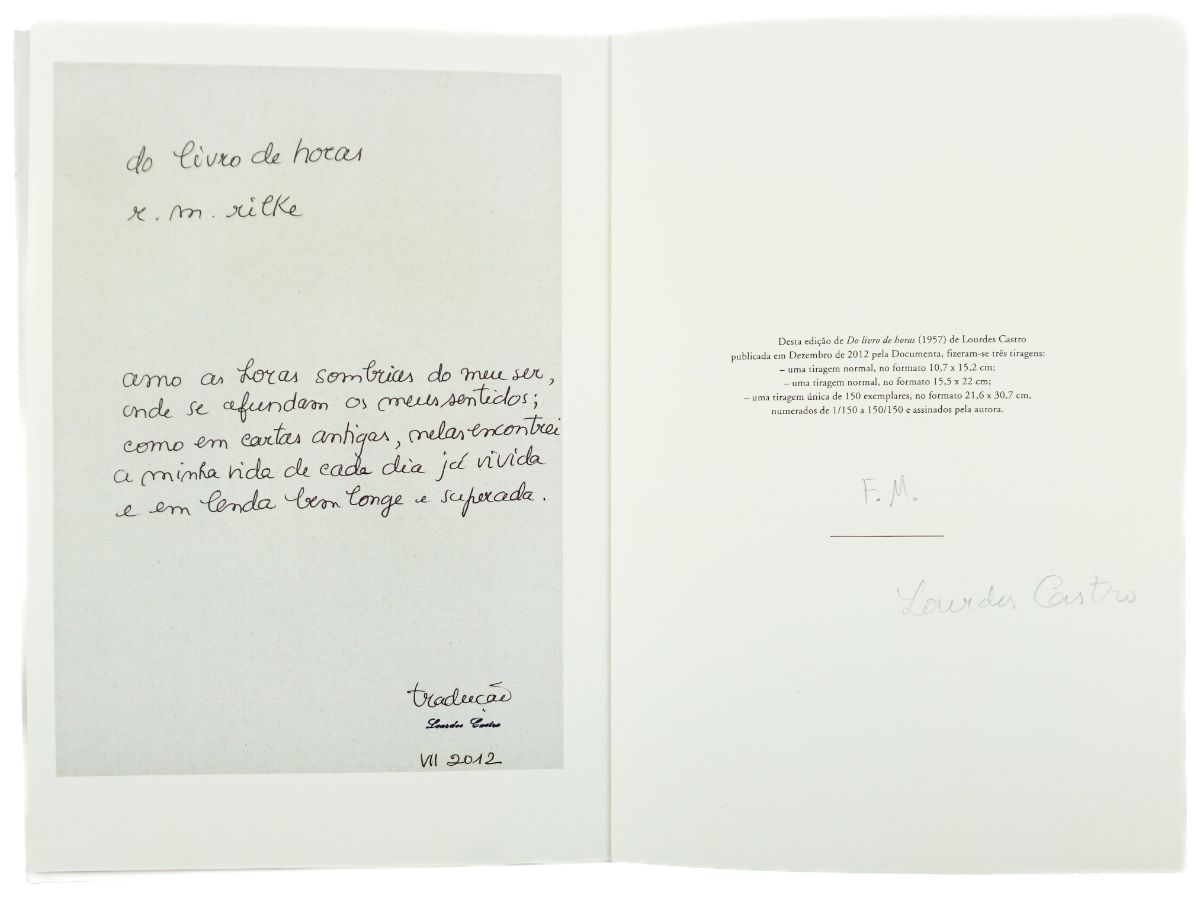 do livro de horas
r. m. rilke
amo as horas sombrias do meu ser,
onde se afundam os meus sentidos;
como em cartas antigas, nelas encontrei
a minha vida de cada dia já vivida
e em lenda bem longe e superada.
tradução
Lourdes Castro
VII 2012
Desta edição de Do livro de horas (1957) de Lourdes Castro
publicada em Dezembro de 2012 pela Documenta, fizeram-se três tiragens:
– uma tiragem normal, no formato 10,7 x 15,2 cm;
– uma tiragem normal, no formato 15,5 x 22 cm;
– uma tiragem única de 150 exemplares, no formato 21,6 x 30,7 cm,
numerados de 1/150 a 150/150 e assinados pela autora.
F. M.
Lourdes Castro